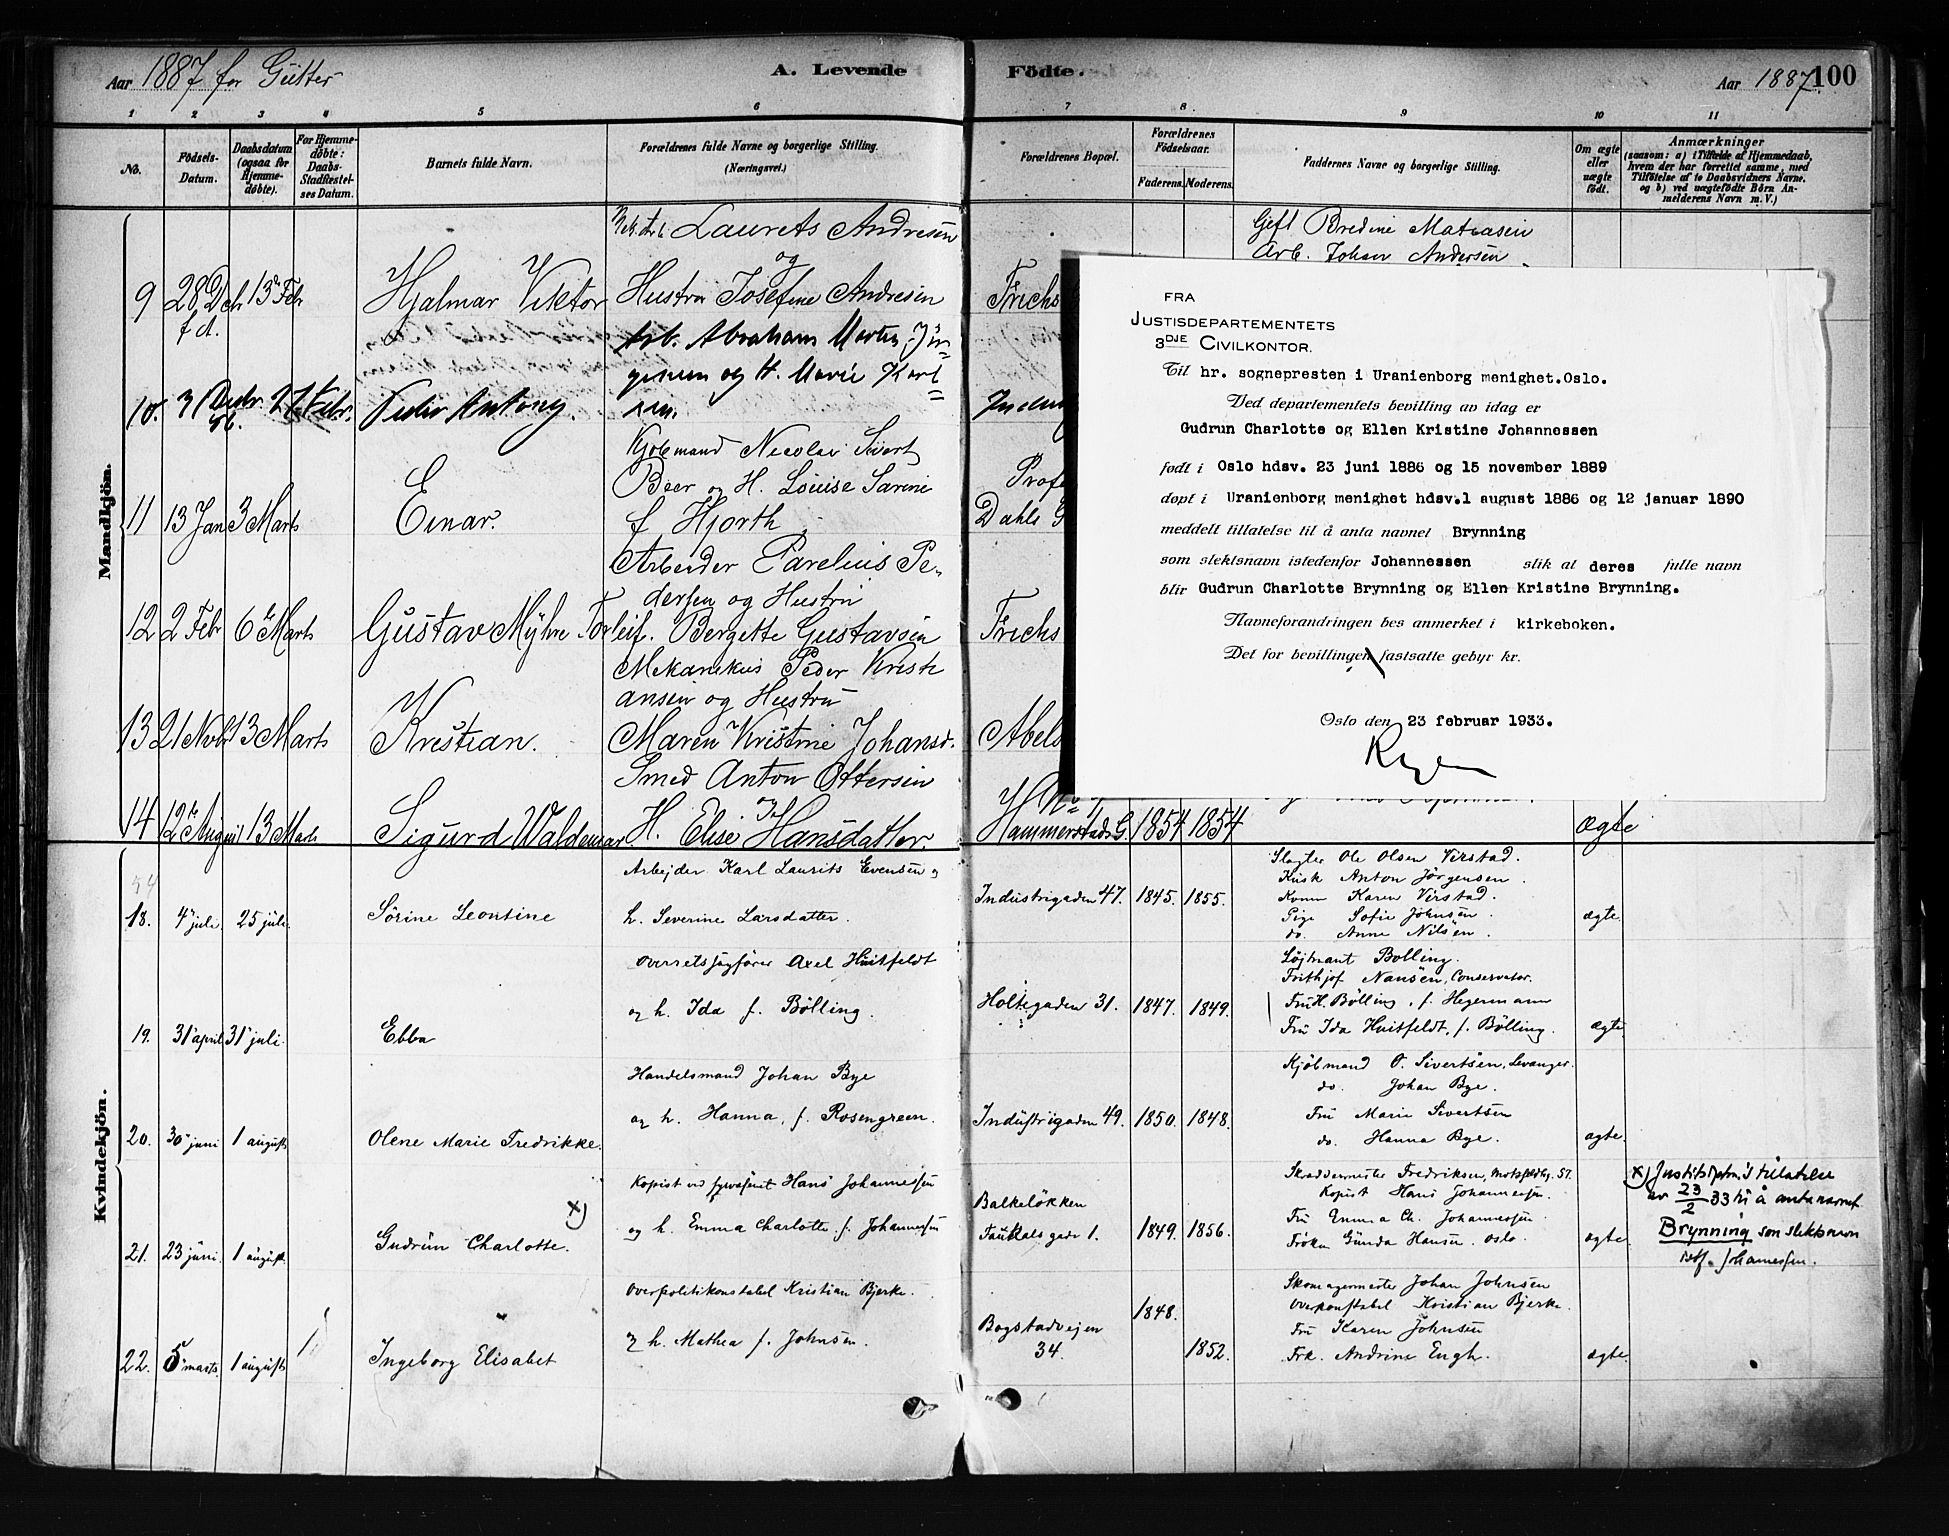 Aar 1887 for Gutter
A. Levende Födte.
Aar 1887. 100
1 2 3 4 5 6 7 8 9 10 11
No.
Födsels-Datum.
Daabsdatum (ogsaa for Hjemmedøbte).
For Hjemmedøbte: Daabs Stadfæstelses Datum.
Barnets fulde Navn.
Forældrenes fulde Navne og borgerlige Stilling.
(Næringsvei.)
Forældrenes Bopæl.
Forældrenes Födselsaar.
Faderens. Moderens.
Faddernes Navne og borgerlige Stilling.
Om ægte eller uægte födt.
Anmærkninger
(saasom: a) i Tilfælde af Hjemmedaab, hvem der har forrettet samme, med Tilföielse af to Daabsvidners Navne. og b) ved uægtefödte Börn Anmelderens Navn m. V.)
Mandkjön.
Laurets Andresen
og
9 28 Dcb f.a. 13 Feb Hjalmar Viktor Hustru Josefine Andresen Frichs
Gift Bredine Matiasen
Arb. Johan Andersen
Arb. Abraham Martin Jör-
gensen og H. Marie Karl-
10. 31 Decbr. 86. 27 Febr. Peder Antony. sen.
Kjöbmand Nicolai Sivert
Beer og H. Louise Sarine
11 13 Jan 3 Marts Einar. f Hjorth Prof Dahls G
Arbeider Parelius Pe-
dersen og Hustru
12 2 Febr 6 Marts Gustav Myhre Torleif. Bergette Gustavsen Frichs
Mekanikus Peder Kristi
ansen og Hustru
13 21 Nvbr 13 Marts Kristian. Maren Kristine Johansd. Abels
Smed Anton Ottersen
og
14 12te August 13 Marts Sigurd Waldemar H. Elise Hansdatter. Hammerstads G. 1854 1854 ægte
FRA
JUSTISDEPARTEMENTETS
3DJE CIVILKONTOR.
Til hr. sognepresten i Uranienborg menighet.Oslo.
Ved departementets bevilling av idag er
Gudrun Charlotte og Ellen Kristine Johannessen
født i Oslo hdsv. 23 juni 1886 og 15 november 1889
døpt i Uranienborg menighet hdsv.1 august 1886 og 12 januar 1890
meddelt tillatelse til å anta navnet Brynning
som slektsnavn istedenfor Johannessen slik at deres fulle navn
blir Gudrun Charlotte Brynning og Ellen Kristine Brynning.
Navneforandringen bes anmerket i kirkeboken.
Det for bevillingen fastsatte gebyr kr.
Oslo den 23 februar 1933.
Kvindekjön.
54
Arbejder Karl Laurits Evensen og
18. 4 juli. 25 juli. Sörine Leontine h. Severine Larsdatter. Industrigaden 47. 1845. 1855. ægte.
Slagter Ole Olsen Virstad.
Kusk Anton Jörgensen.
Kone Karen Virstad.
Pige Sofie Johnsen
do. Anne Nilsen.
Overretssagförer Axel Huitfeldt
19. 31 april 31 juli. Ebba og h. Ida f. Bölling. Holtegaden 31. 1847. 1849. ægte.
Löjtnant Bolling.
Frithjof Nansen, Conservator.
Fru H. Bölling, f. Hegermann
Fru Ida Huitfeldt, f. Bölling.
Handelsmand Johan Bye
20. 30 juni 1 august Olene Marie Fredrikke. og h. Hanna, f. Rosengreen. Industrigaden 49. 1850. 1848. ægte.
Kjöbmand O. Sivertsen, Levanger.
do. Johan Bye.
Fru Marie Sivertsen
do. Hanna Bye.
Kopist ved fyrvæsenet Hans Johannessen
21. 23 juni. 1 august. Gudrun Charlotte. x) og h. Emma Charlotte f. Johannessen Balkeløkken Fauchalsgade 1. 1849. 1856. ægte.
Skræddermester Fredriksen, Motzfeldtsg. 57.
Kopist Hans Johannessen.
Fru Emma Ch. Johannessen
Fröken Gunda Hansen. Oslo.
x) Justitsdptm.'s tillatelse
av 23/2 33 til å anta navnet
Brynning som slektsnavn
istf. Johannessen.
Overpolitikonstabel Kristian Bjerke.
22. 5 marts. 1 august 1 Ingeborg Elisabet og h. Mathea f. Johnsen. Bogstadvejen 34. 1848. 1852. ægte.
Skomagermester Johan Johnsen
Overkonstabel Kristian Bjerke.
Fru Karen Johnsen
Frk. Andrine Engh.